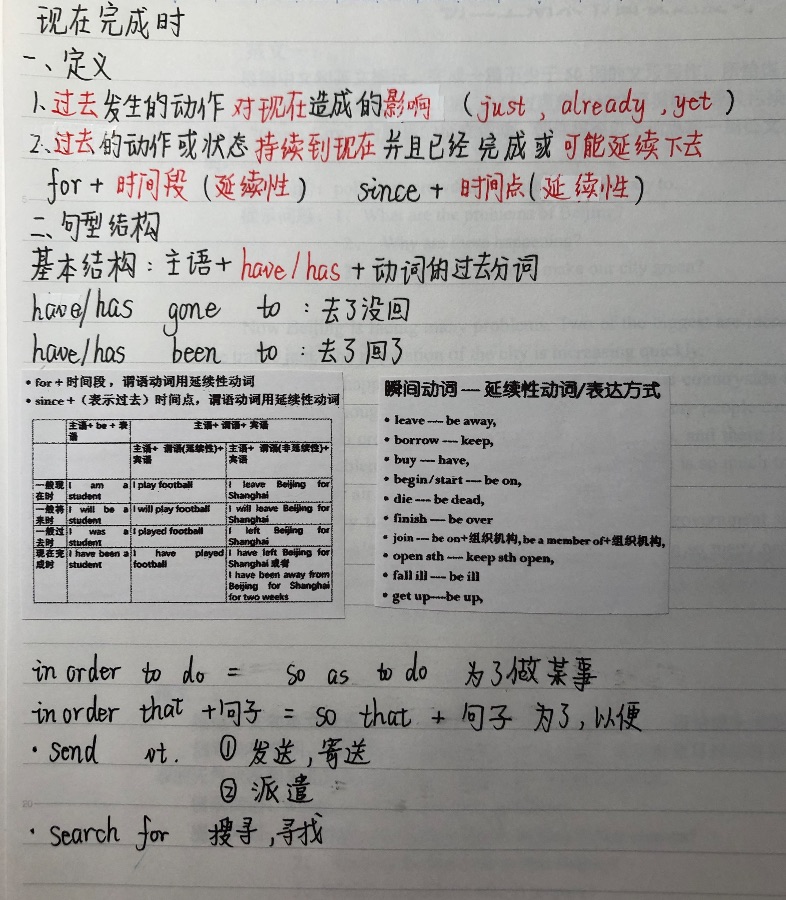 现在完成时
一、定义
1、过去发生的动作对现在造成的影响 (just, already, yet)
2、过去的动作或状态持续到现在并且已经完成或可能延续下去
for + 时间段 (延续性) since + 时间点 (延续性)
二、句型结构
基本结构:主语+ have/has +动词的过去分词
have/has gone to : 去了没回
have/has been to : 去了回了
• for + 时间段,谓语动词用延续性动词
• since + (表示过去) 时间点,谓语动词用延续性动词
主语+ be + 表语 主语+ 谓语+ 宾语
主语+ 谓语(延续性)+ 宾语 主语+ 谓语(非延续性)+ 宾语
一般现在时 I am a student I play football I leave Beijing for Shanghai
一般将来时 I will be a student I will play football I will leave Beijing for Shanghai
一般过去时 I was a student I played football I left Beijing for Shanghai
现在完成时 I have been a student I have played football I have left Beijing for Shanghai 或者
I have been away from Beijing for Shanghai for two weeks
瞬间动词 — 延续性动词/表达方式
• leave --- be away,
• borrow --- keep,
• buy --- have,
• begin/start --- be on,
• die --- be dead,
• finish --- be over
• join --- be on+组织机构, be a member of+组织机构,
• open sth --- keep sth open,
• fall ill --- be ill
• get up---be up,
in order to do = so as to do 为了做某事
in order that +句子 = so that + 句子 为了,以便
· send vt. ① 发送,寄送
② 派遣
· search for 搜寻,寻找